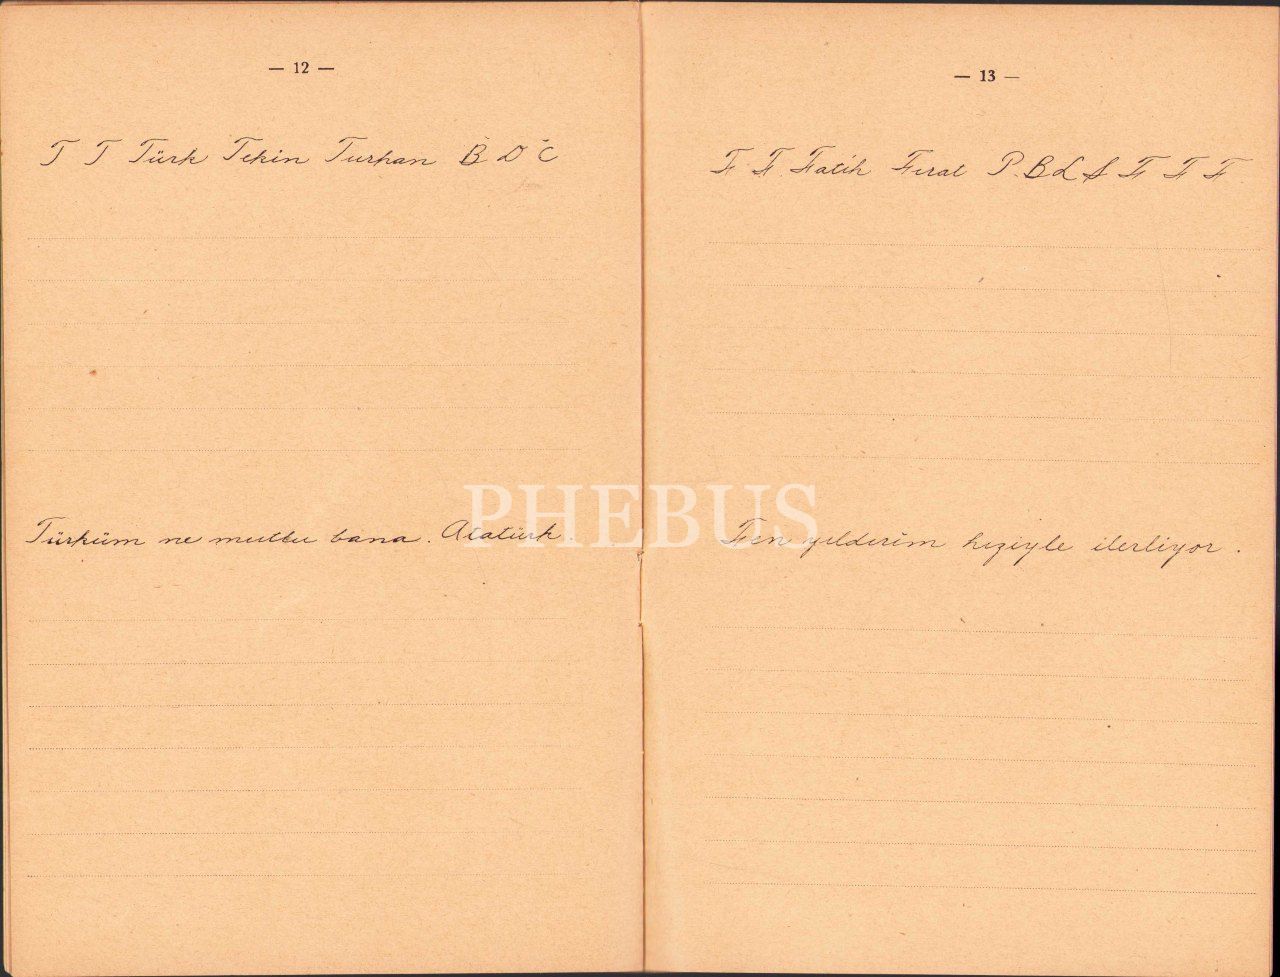 — 12 —
T T Türk Tekin Turhan B D C
Türküm ne mutlu bana. Atatürk.
— 13 —
F F. Fatih Fırat P. B L S F F F
Fen yıldırım hızıyle ilerliyor.
PHEBUS